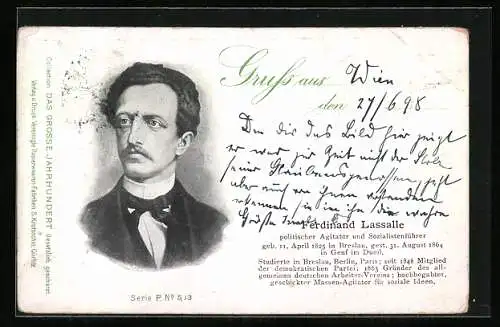 Gruss aus Wien
den 27/6 98
Den dir das Bild hier zeigt
er war zur Zeit nicht der Stolz
seiner Glaubensgenossen, jetzt
aber auch von ihnen
in ihm die wahre
Größe
Ferdinand Lassalle
politischer Agitator und Sozialistenführer
geb. 11. April 1825 in Breslau, gest. 31. August 1864
in Genf im Duell.
Studierte in Breslau, Berlin, Paris; seit 1848 Mitglied
der demokratischen Partei; 1863 Gründer des all-
gemeinen deutschen Arbeiter-Vereins; hochbegabter,
geschickter Massen-Agitator für soziale Ideen.
Serie P. No 5/13
Collection DAS GROSSE JAHRHUNDERT Gesetzlich geschützt.
Verlag u. Druck Vereinigte Papierwaren-Fabriken S. Krotoschin, Görlitz